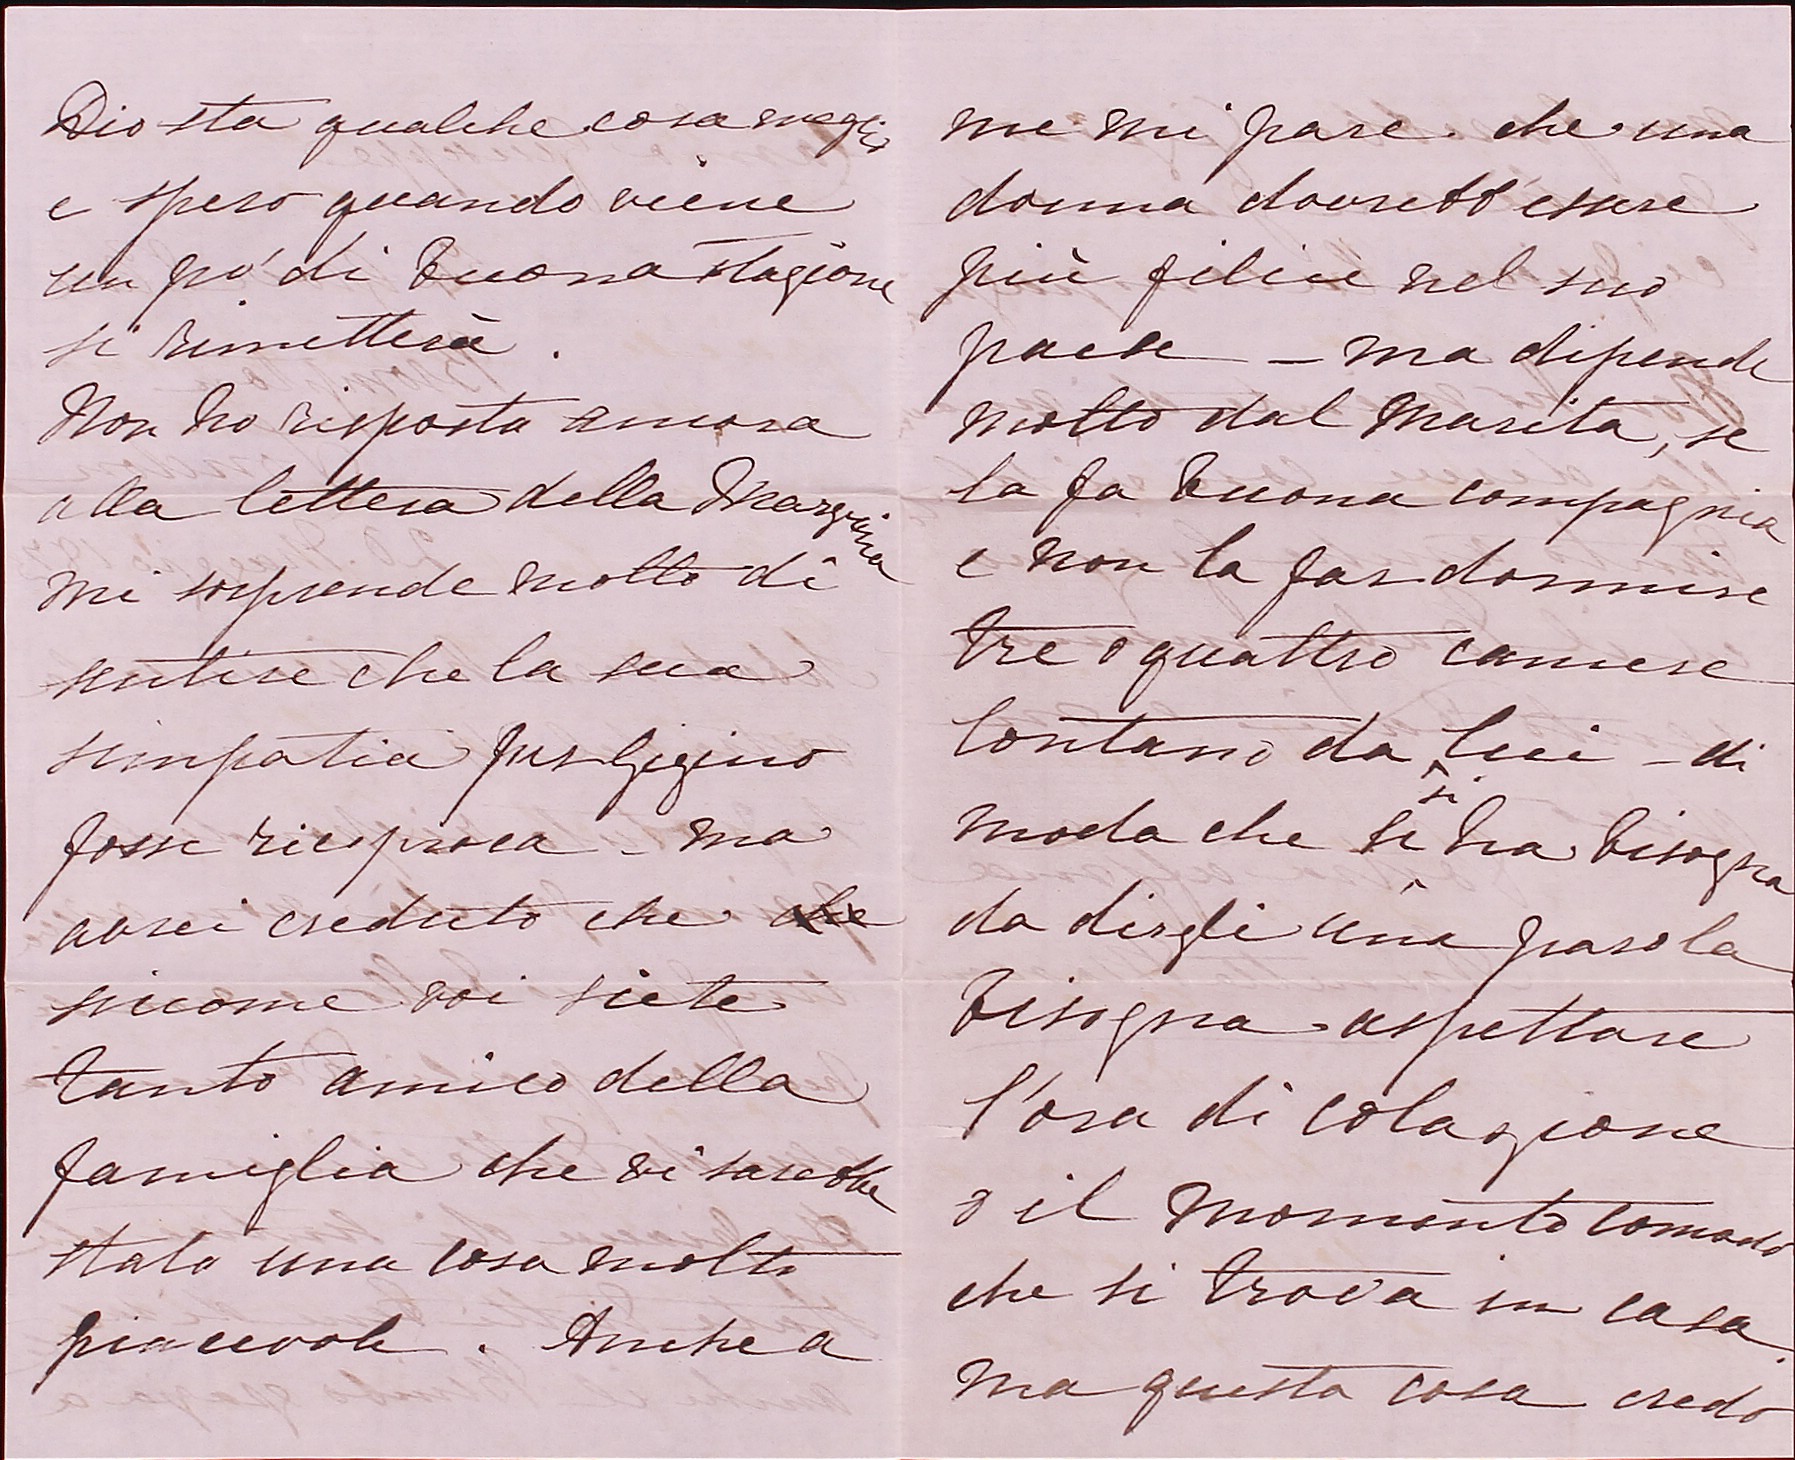 Dio sta qualche cosa meglio
e spero quando viene
un po' di buona stagione
si rimetterà.
Non ho risposta ancora
alla lettera della Marquina
mi sorprende molto di
sentire che la sua
simpatia per Gigino
fosse riciproca - ma
avrei creduto che che
siccome voi siete
tanto amico della
famiglia che vi sarebbe
stata una cosa molto
piacevole. Anche a
me mi pare che una
donna dovrebb'essere
più felice nel suo
paese - ma dipende
molto dal Marito, se
la fa buona compagnia
e non la far dormire
tre o quattro camere
lontano da lui - di
moda che si se ha bisogna
da dirgli una parola
bisogna aspettare
l'ora di colazione
o il momento comodo
che si trova in casa.
ma questa cosa credo